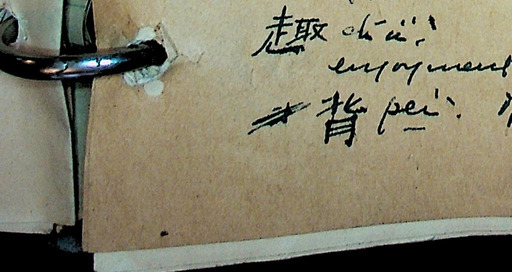 趣
enjoyment
背 pei